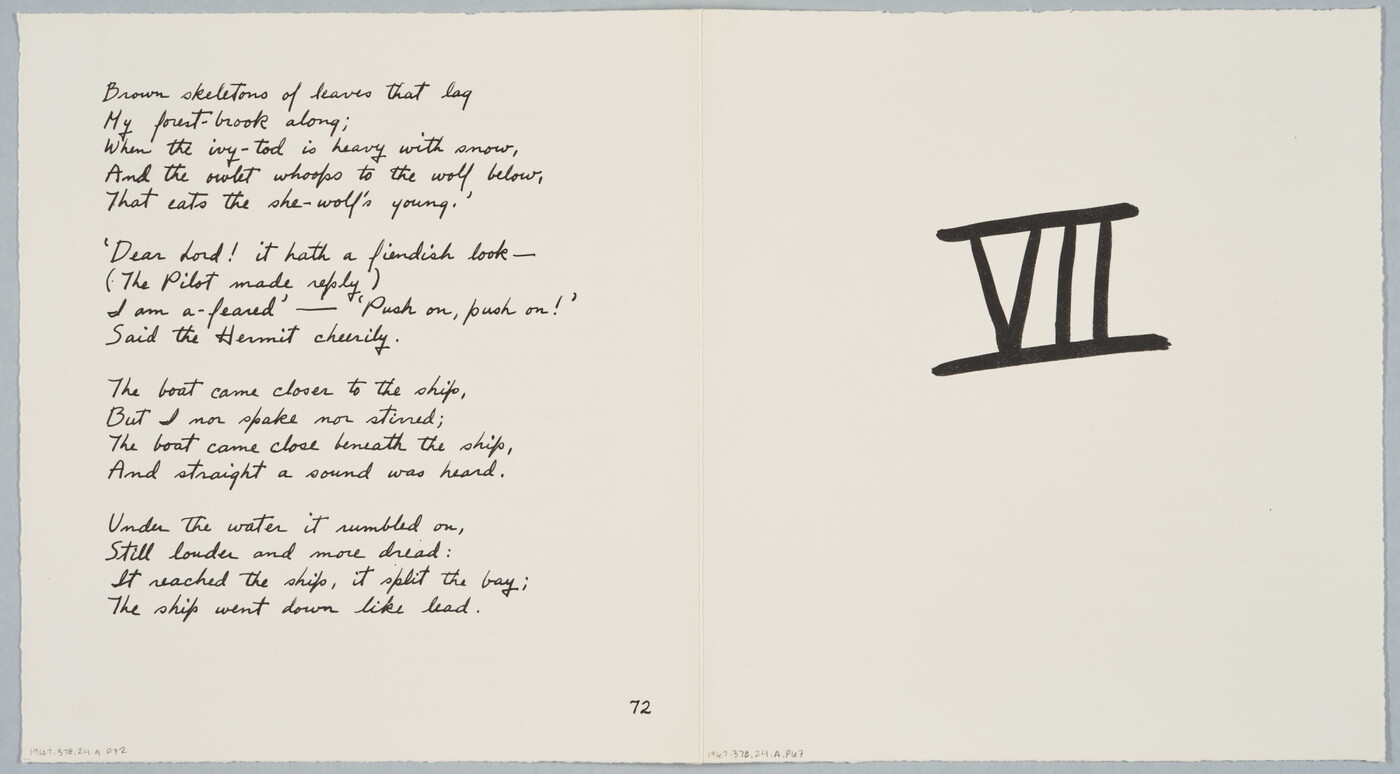 Brown skeletons of leaves that lag
My forest-brook along;
When the ivy-tod is heavy with snow,
And the owlet whoops to the wolf below,
That eats the she-wolf's young.'
'Dear Lord! it hath a fiendish look—
(The Pilot made reply)
I am a-feared' — 'Push on, push on!'
Said the Hermit cheerily.
The boat came closer to the ship,
But I nor spake nor stirred;
The boat came close beneath the ship,
And straight a sound was heard.
Under the water it rumbled on,
Still louder and more dread:
It reached the ship, it split the bay;
The ship went down like lead.
72
1967.378.24.A.P72
VII
1967.378.24.A.P67